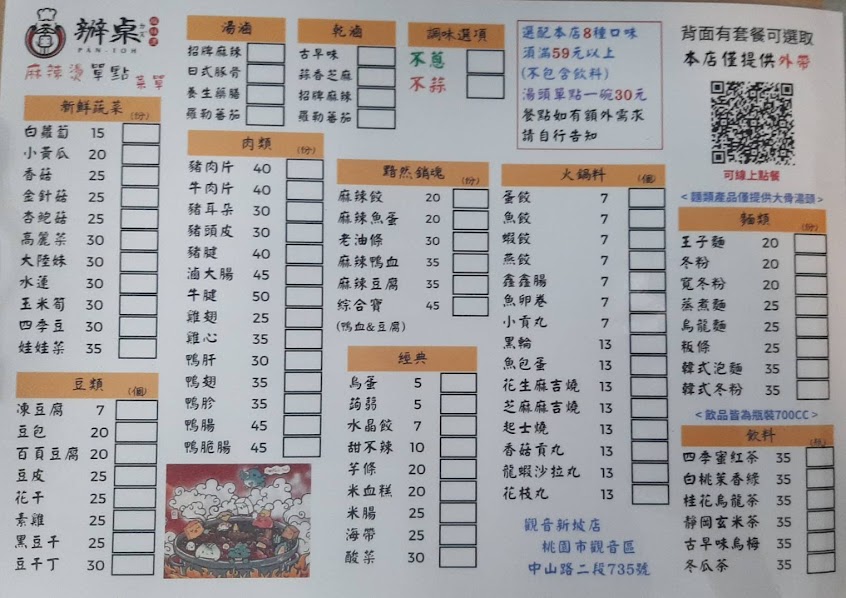 辦桌
PAN-TOH
麻辣燙單點菜單
新鮮蔬菜 (份)
白蘿蔔 15
小黃瓜 20
香菇 25
金針菇 25
杏鮑菇 25
高麗菜 30
大陸妹 30
水蓮 30
玉米筍 30
四季豆 30
娃娃菜 35
豆類 (個)
凍豆腐 7
豆包 20
百頁豆腐 20
豆皮 25
花干 25
素雞 25
黑豆干 25
豆干丁 30
湯滷
招牌麻辣
日式豚骨
養生藥膳
羅勒蕃茄
乾滷
古早味
蒜香芝麻
招牌麻辣
羅勒蕃茄
調味選項
不蔥
不蒜
肉類 (份)
豬肉片 40
牛肉片 40
豬耳朵 30
豬頭皮 30
豬腱 40
滷大腸 45
牛腱 50
雞翅 25
雞心 35
鴨肝 30
鴨翅 35
鴨胗 35
鴨腸 45
鴨脆腸 45
黯然銷魂 (份)
麻辣餃 20
麻辣魚蛋 20
老油條 30
麻辣鴨血 35
麻辣豆腐 35
綜合寶 45
(鴨血&豆腐)
經典
鳥蛋 5
蒟蒻 5
水晶餃 7
甜不辣 10
芋條 20
米血糕 20
米腸 25
海帶 25
酸菜 30
選配本店8種口味
須滿59元以上
(不包含飲料)
湯頭單點一碗30元
餐點如有額外需求
請自行告知
火鍋料 (個)
蛋餃 7
魚餃 7
蝦餃 7
燕餃 7
鑫鑫腸 7
魚卵卷 7
小貢丸 7
黑輪 13
魚包蛋 13
花生麻吉燒 13
芝麻麻吉燒 13
起士燒 13
香菇貢丸 13
龍蝦沙拉丸 13
花枝丸 13
觀音新坡店
桃園市觀音區
中山路二段735號
背面有套餐可選取
本店僅提供外帶
可線上點餐
<麵類產品僅提供大骨湯頭>
麵類 (份)
王子麵 20
冬粉 20
寬冬粉 20
蒸煮麵 25
烏龍麵 25
粄條 25
韓式泡麵 35
韓式冬粉 35
<飲品皆為瓶裝700CC>
飲料
四季蜜紅茶 35
白桃茉香綠 35
桂花烏龍茶 35
靜岡玄米茶 35
古早味烏梅 35
冬瓜茶 35